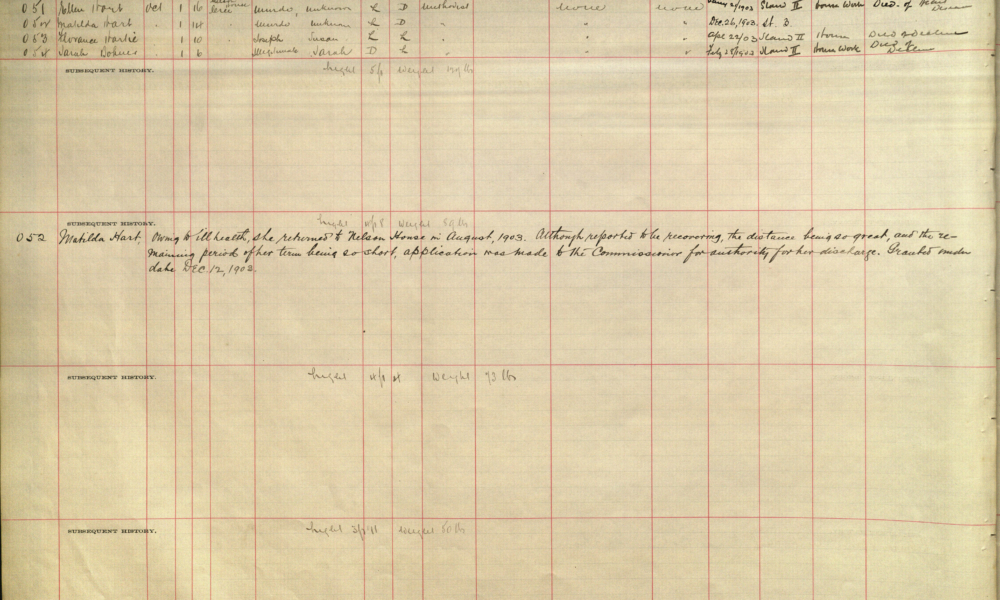 051 Ellen Hart Oct 1 16 Murdo, unknown L D Methodist none none 1903 Stand II House Work Died of
052 Matilda Hart " 1 14 Murdo unknown L D " " " Dec. 26, 1903 St. B.
053 Florance Hartie 1 10 Joseph Susan L L " " " Apl 22/03 Stand II House Died of Decline
054 Sarah 1 6 Sarah D L " " Feby 1903 Stand II House Work Died of
SUBSEQUENT HISTORY. height 5/1 Weight lbs
SUBSEQUENT HISTORY. height Weight lb
052 Matilda Hart. Owing to ill health, she returned to Nelson House in August, 1903. Although reported to be recovering, the distance being so great, and the re-
maining period of her term being so short, application was made to the Commissioner for authority for her discharge. Granted under
date DEC. 12, 1903.
SUBSEQUENT HISTORY. height Weight 73 lbs
SUBSEQUENT HISTORY. height Weight 50 lb